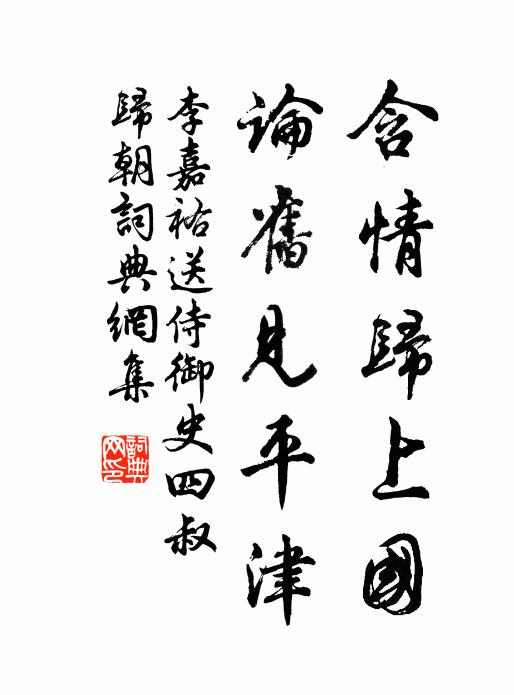 含情歸上國
論舊見平津
李嘉祐送侍御史四叔
歸朝詞典網集
詞典网印